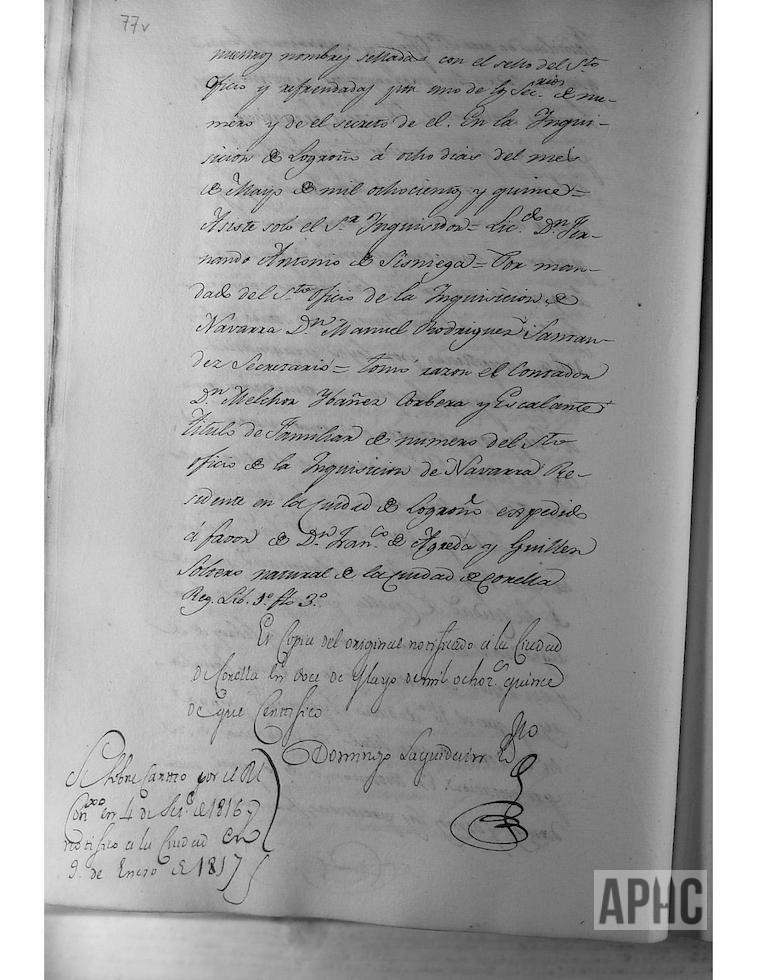 77v
nuestros nombres selladas con el sello del Sto
Oficio y refrendadas por uno de los Secrios de nu-
mero y de el secreto de el. En la Inqui-
sicion de Logroño á ocho dias del mes
de Mayo de mil ochocientos y quince =
Asiste solo el Sr Inquisidor = Licdo Dn Fer-
nando Antonio de Sisniega = Por man-
dado del Sto oficio de la Inquisicion de
Navarra Dn Manuel Rodriguez i Santan-
der Secretario = tomó razon el Contador
Dn Melchor Ybañez Corbera y Escalante
titulo de Familiar de numero del Sto
oficio de la Inquisicion de Navarra Re-
sidente en la ciudad de Logroño espedido
á favor de Dn Franco de Agreda y Guillen
Soltero natural de la ciudad de Corella
Reg. Lib. 1º flo 3º
Es Copia del original notificado a la Ciudad
de Corella en doce de Mayo de mil ochocs quince
de que Certifico
Domingo Laquidain
por el Rl
en 4 de de 1816 y
notifico a la Ciudad en
9. de Enero de 1817
APHC